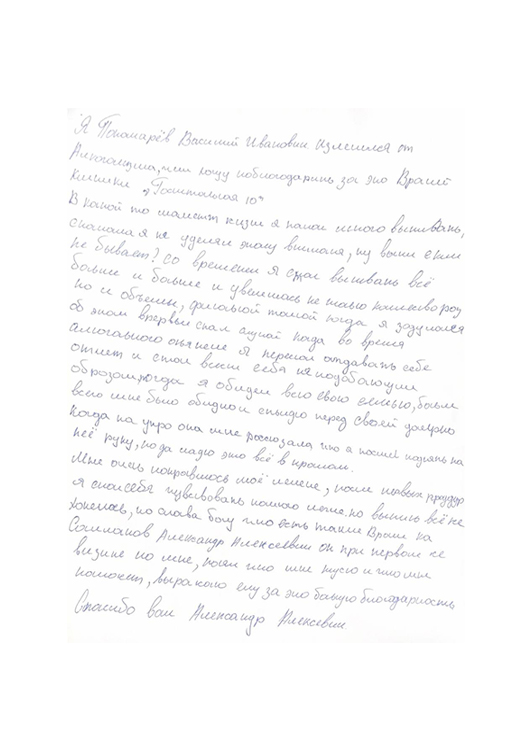 Я Пономарёв Василий Иванович излечился от
Алкоголизма, хочу поблагодарить за это Врачей
клиники „Госпитальная 10"
В какой то момент жизни я начал много выпивать,
сначала я не уделял этому внимания, ну выпил с кем
не бывает? Со временем я стал выпивать всё
больше и больше и увеличилось не только количество
но и объемы, финальной точкой когда я задумался
об этом впервые стал случай когда во время
алкогольного опьянения я перестал отдавать себе
отчет и стал вести себя не подобающим
образом, тогда я обидел всю свою семью, больше
всего мне было обидно и стыдно перед своей дочерью
когда на утро она мне рассказала что я посмел поднять на
неё руку, но да ладно это всё в прошлом.
Мне очень понравилось моё лечение, после первых процедур
я стал себя чувствовать намного легче, но выпить всё же
хотелось, но слава богу что есть такие Врачи как
Александр Алексеевич он при первом же
визите по мне, понял что мне нужно и что мне
поможет, выражаю ему за это большую благодарность
Спасибо вам Александр Алексеевич.